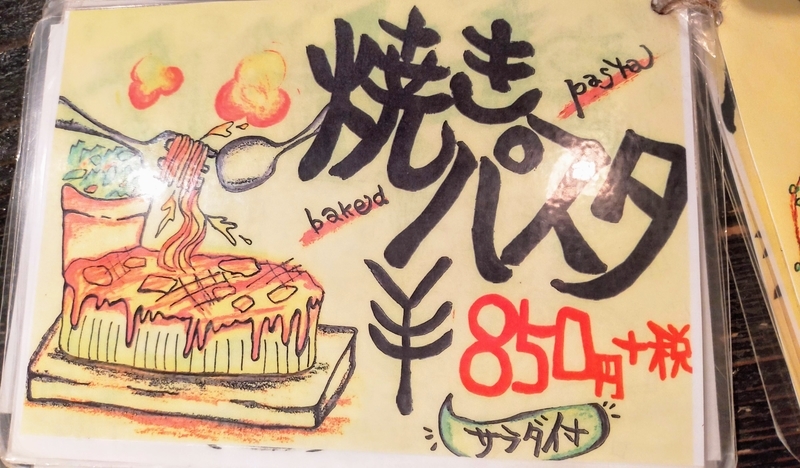 焼き
pasta
パスタ
baked
¥850円+税
サラダ付